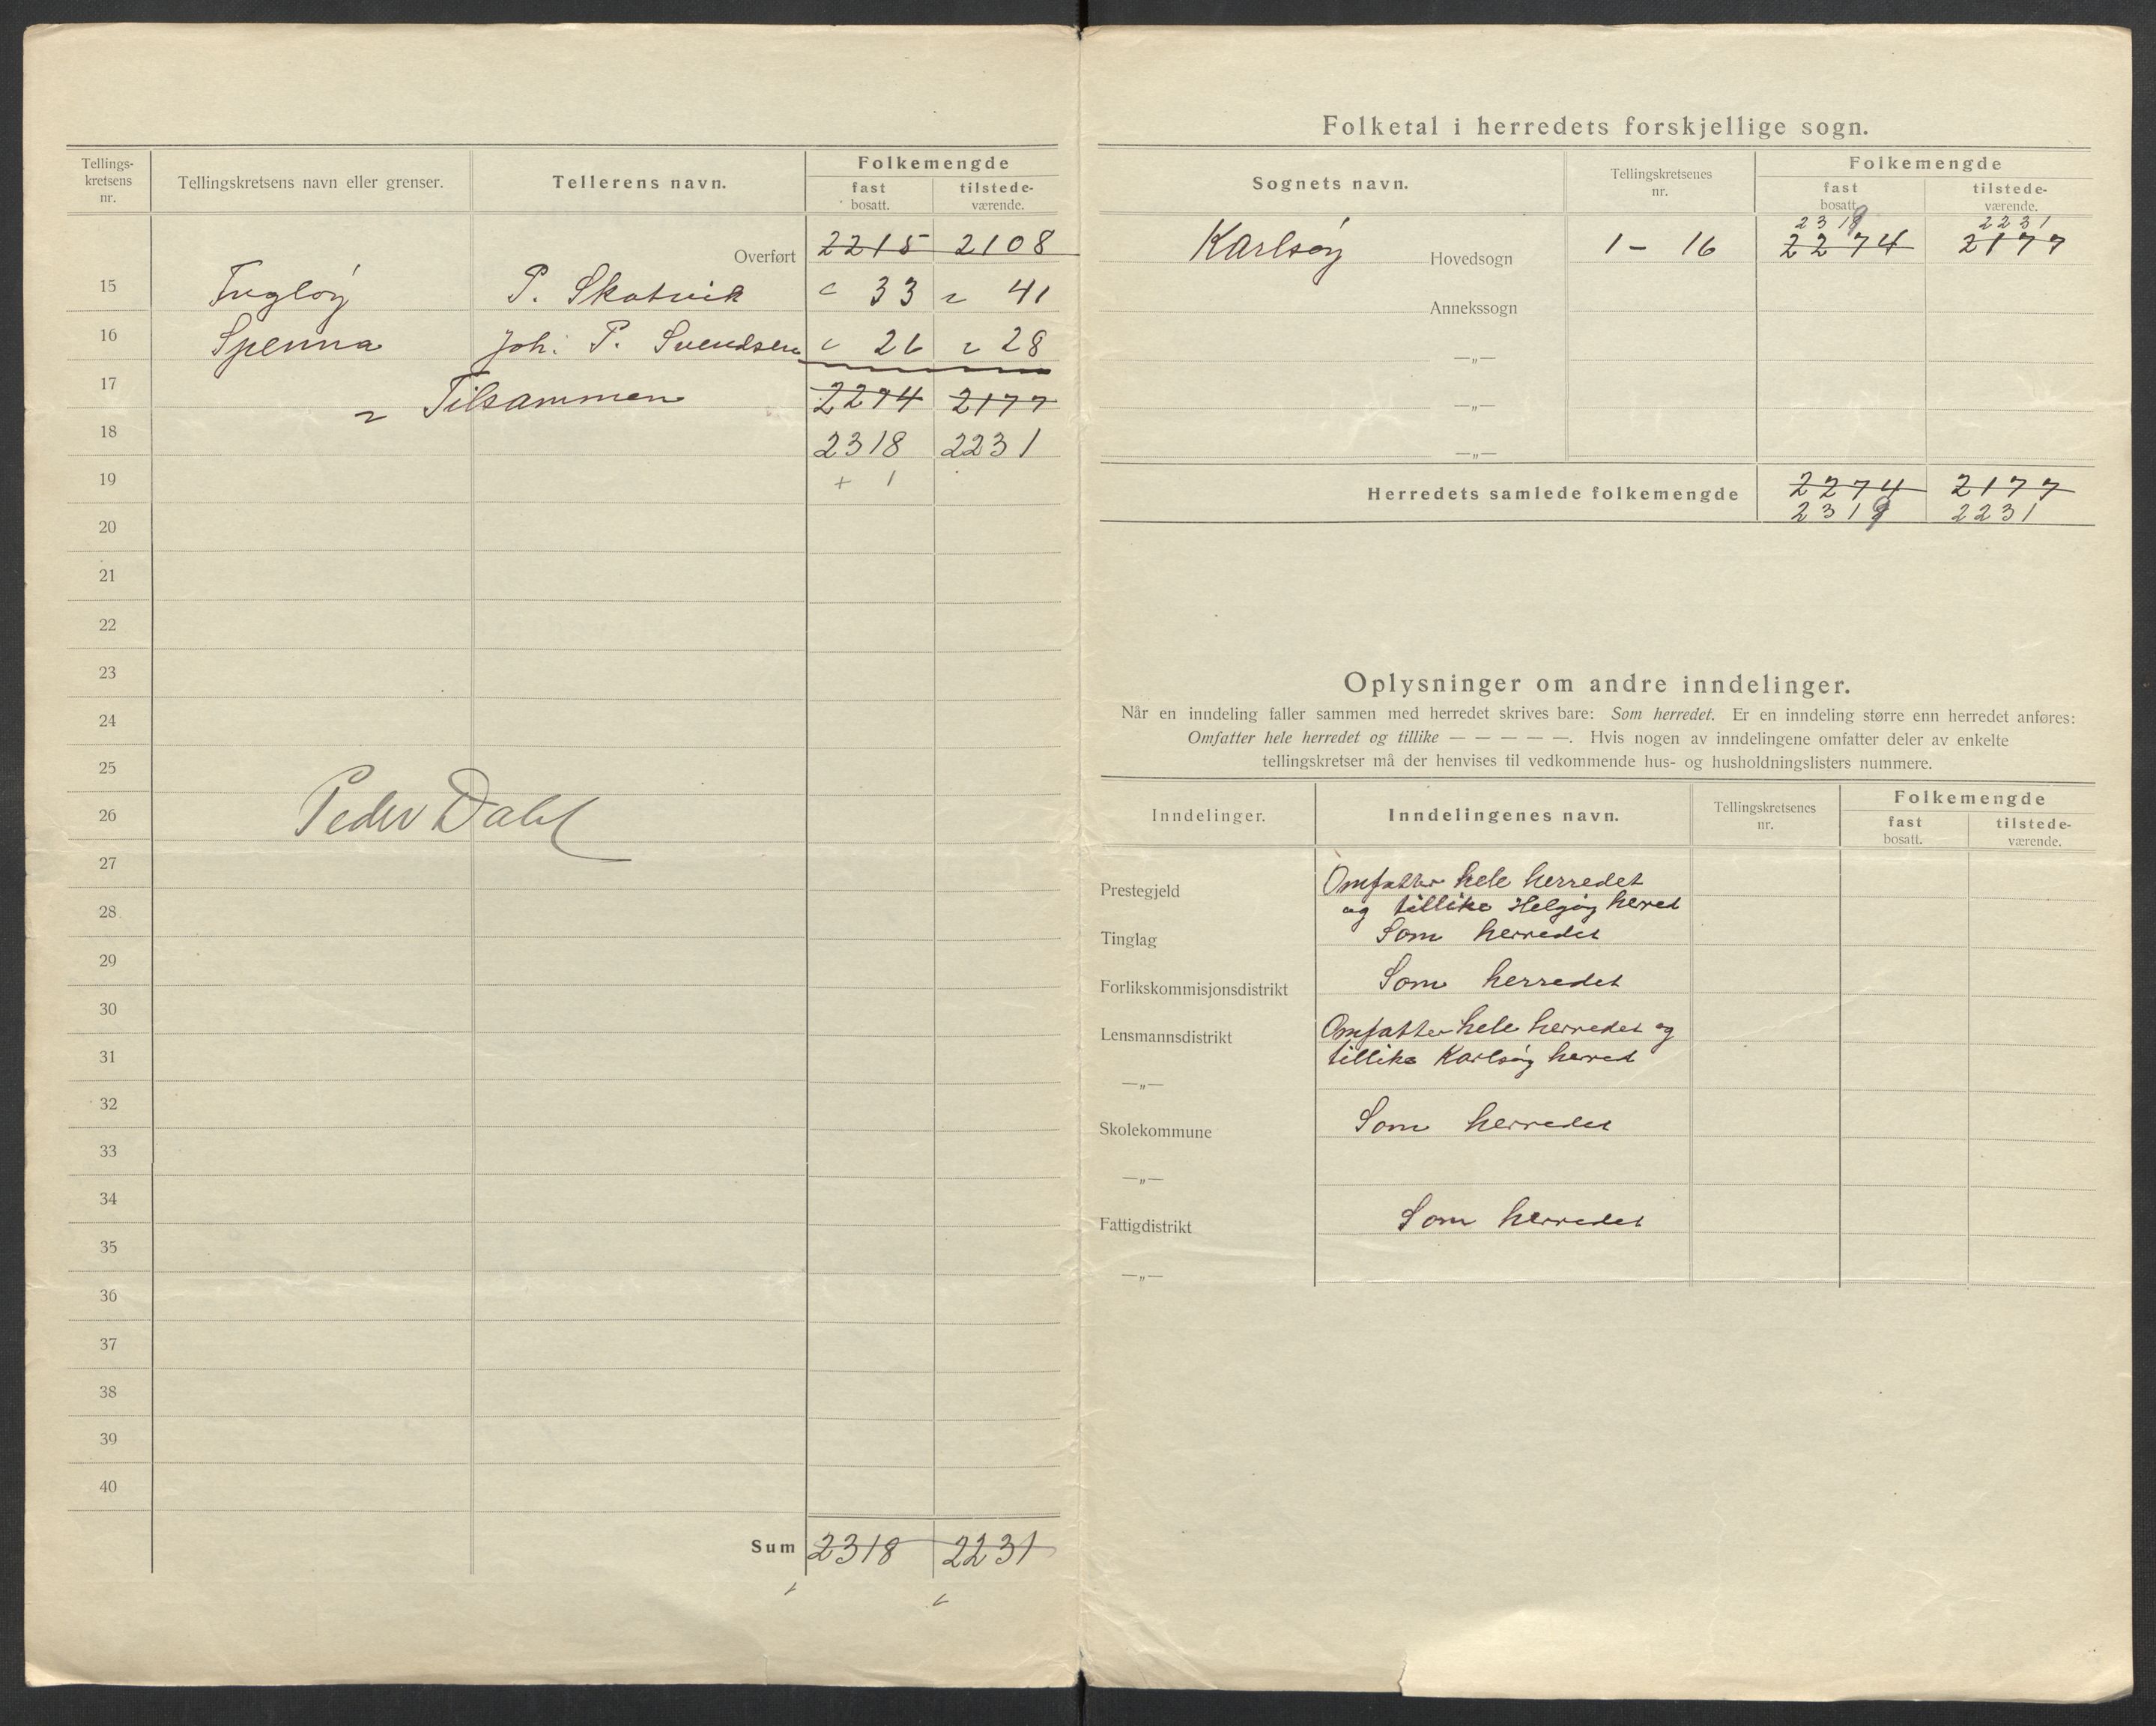 Tellings-
kretsens
nr.
Tellingskretsens navn eller grenser.
Tellerens navn.
Folkemengde
fast
bosatt.
tilstede-
værende.
Overført 2215 2108
15 Fugløy P. Skatvik 33 41
16 Spenna Joh. P. Svendsen 26 28
17 Tilsammen 2274 2177
18 2318 2231
19 + 1
20
21
22
23
24
25
26 Peder Dahl
27
28
29
30
31
32
33
34
35
36
37
38
39
40
Sum 2318 2231
Folketal i herredets forskjellige sogn.
Sognets navn.
Tellingskretsenes
nr.
Folkemengde
fast
bosatt.
tilstede-
værende.
2319 2231
Karlsøy Hovedsogn 1 - 16 2274 2177
Annekssogn
—„—
—„—
—„—
Herredets samlede folkemengde 2274 2177
2319 2231
Oplysninger om andre inndelinger.
Når en inndeling faller sammen med herredet skrives bare: Som herredet. Er en inndeling større enn herredet anføres:
Omfatter hele herredet og tillike — — — — —. Hvis nogen av inndelingene omfatter deler av enkelte
tellingskretser må der henvises til vedkommende hus- og husholdningslisters nummere.
Inndelinger.
Inndelingenes navn.
Tellingskretsenes
nr.
Folkemengde
fast
bosatt.
tilstede-
værende.
Prestegjeld Omfatter hele herredet
og tillike Helgøy hered
Tinglag Som herredet
Forlikskommisjonsdistrikt Som herredet
Lensmannsdistrikt Omfatter hele herredet og
tillike Karlsøy herred
—„—
Skolekommune Som herredet
—„—
Fattigdistrikt Som herredet
—„—